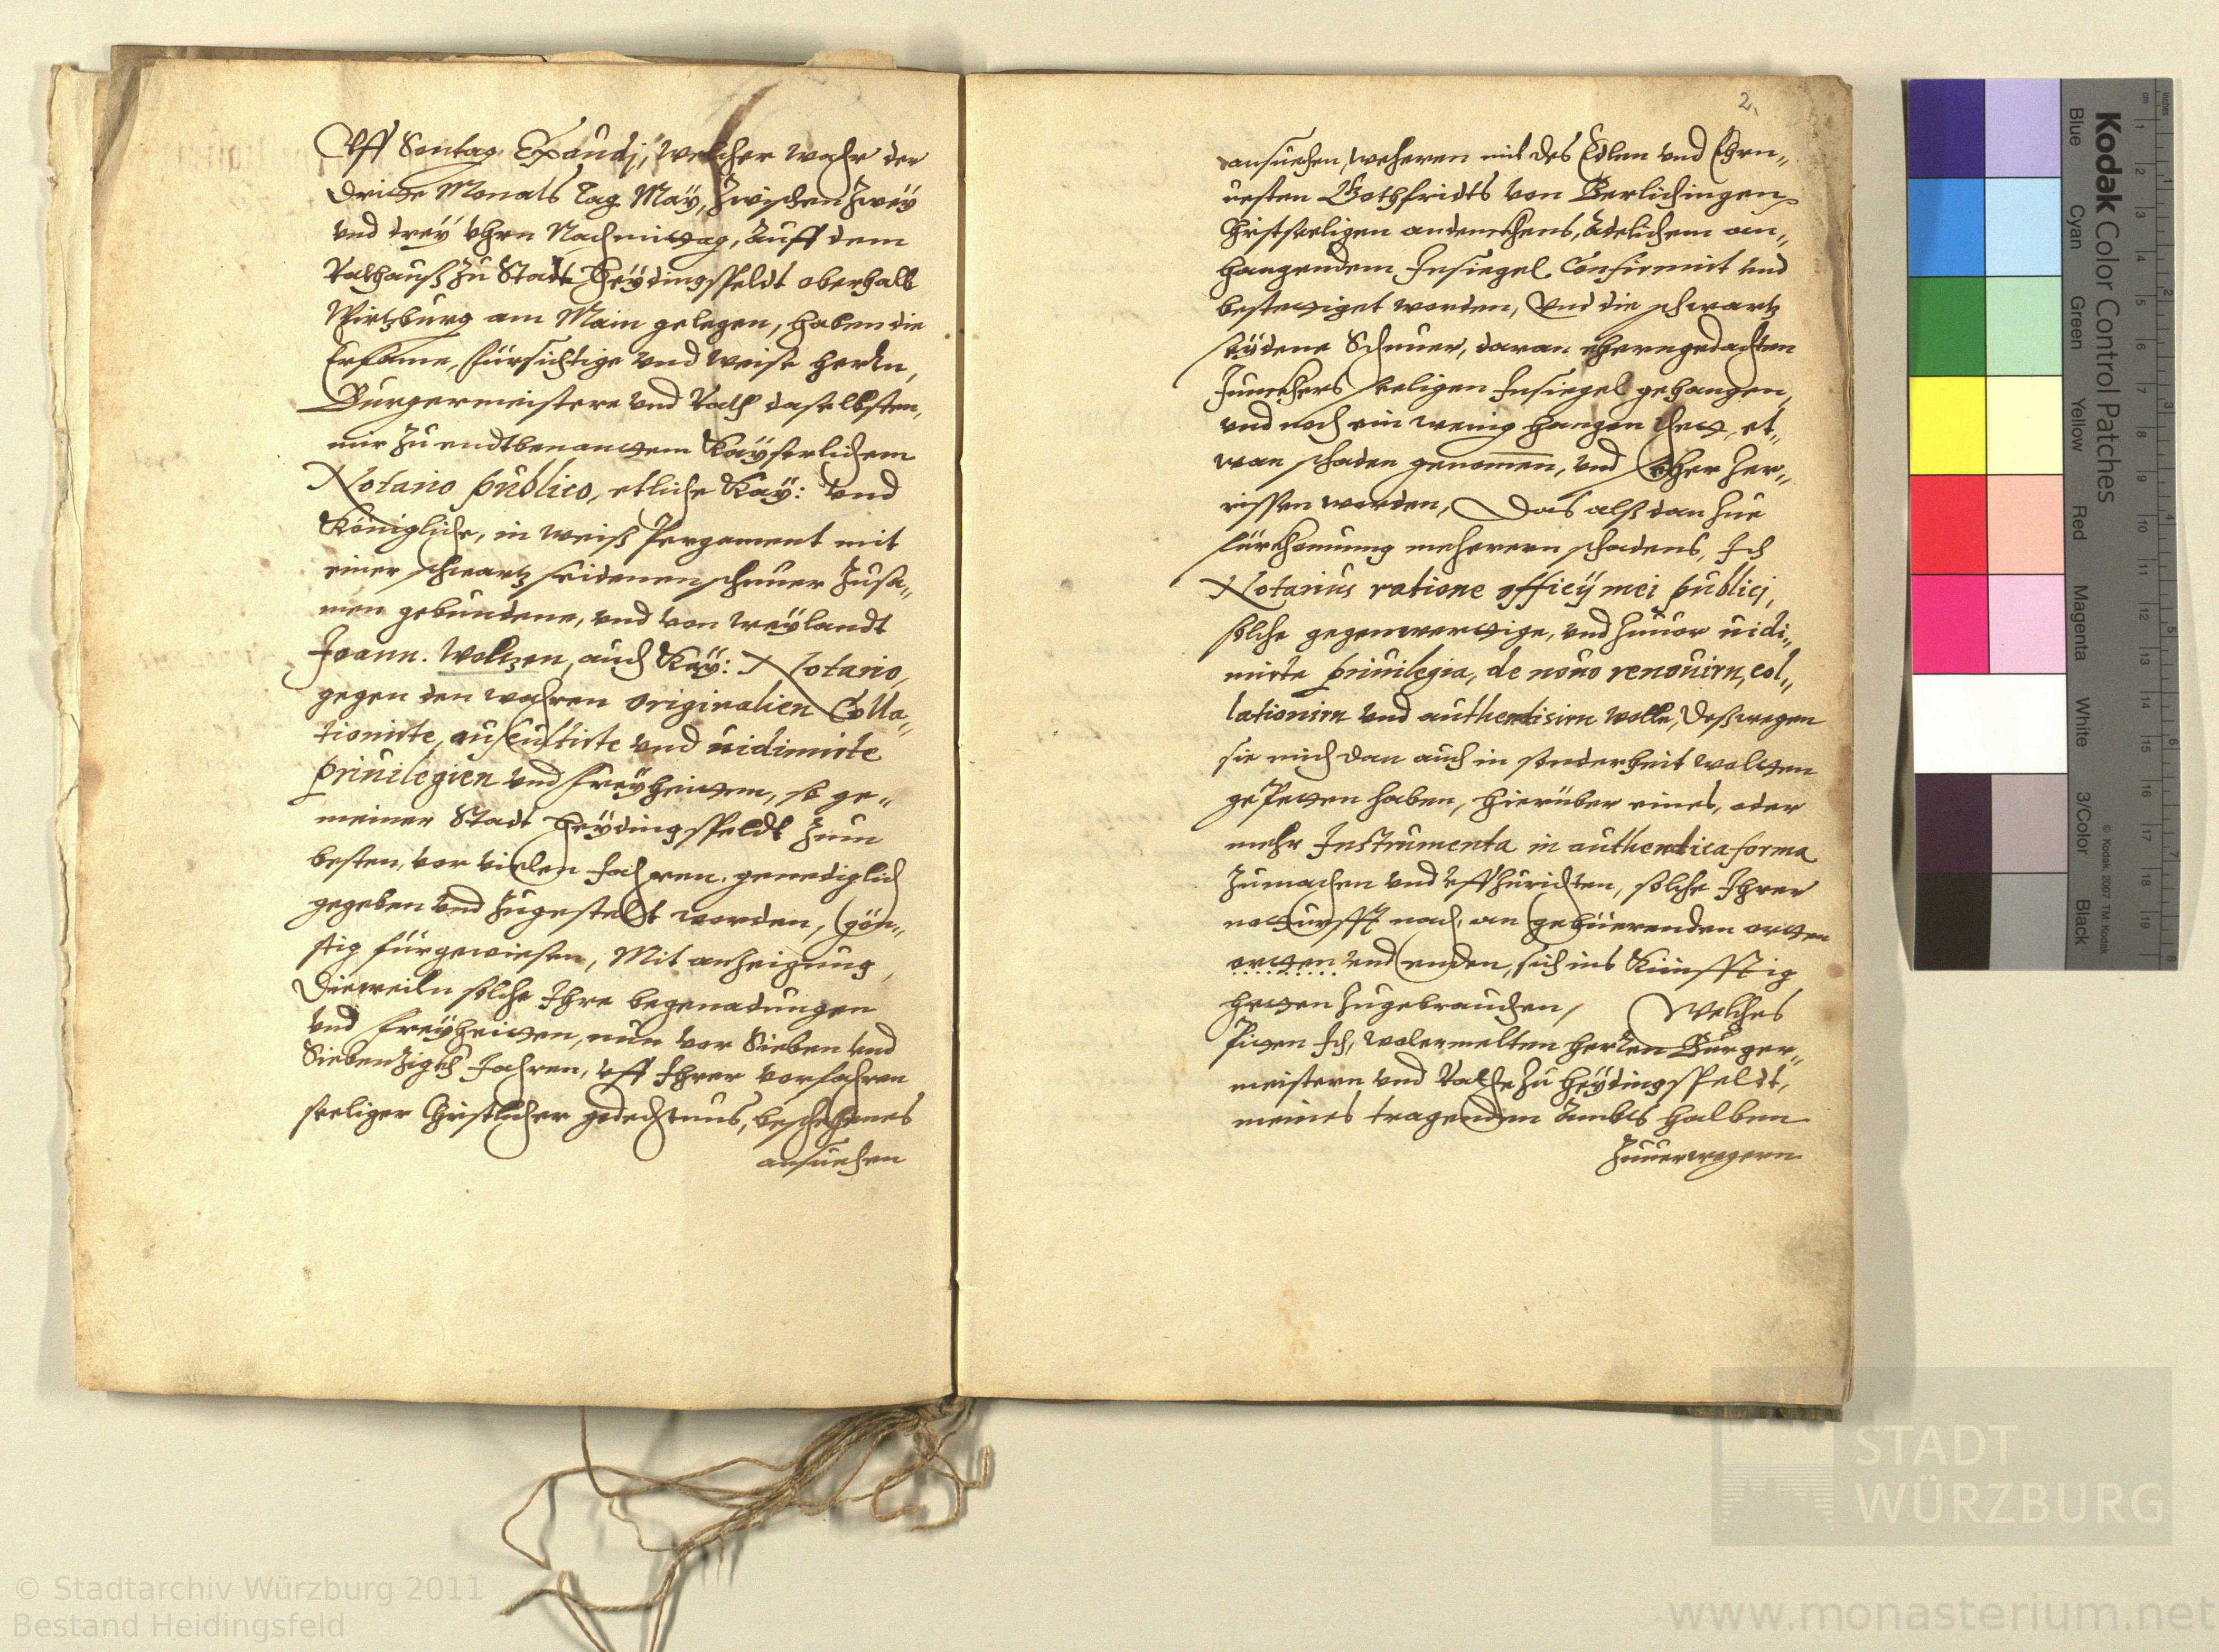 Vff Sontag Exaudj, welcher wahr der
dritte Monats Tag Maÿ, Zwischen Zweÿ
vnd dreÿ Vhrn Nachmittag, Auff dem
Rathauß Zu Stadt Heÿdingsfeldt oberhalb
Wirtzburg am Main gelegen, haben die
Ersame, fürsichtige vnd weise herrn,
Burgermeistere vnd Rath daselbsten,
mir Zu endtbenantem Kaÿserlichem
Notario publico, etliche Kaÿ: vnd
Königliche, in weiß Pergament mit
einer schwartz seidenen schnuer Zusa„
men gebundene, vnd von weÿlandt
Joann. Woltzen, auch Kaÿ: Notario,
gegen den wahren originalien Colla„
tionirte, auscultirte vnd uidimirte
priuilegien vnd freÿheitten, so ge„
meiner Stadt Heÿdingsfeldt Zum
besten, vor vielen Jahren genediglich
gegeben vnd Zugestelt worden, gön„
stig fürgewiesen, Mit anZeigung,
Dieweiln solche Ihre begenadungen
vnd freÿheitten, nun vor Sieben vnd
Siebenzigk Jahren, vff Ihrer vorfahren
seeliger Christlicher gedechtnus, beschehenes
ansuchen
2.
ansuchen, weheren mit des Edlen vnd Ehrn„
uesten Gothfridts von Berlichingen
Christseeligen andenckhens, Adelichem an„
hangendem Insiegel Confirmirt vnd
bestettiget worden, Vnd die schwartz
seÿdene Schnuer, daran eherngedachten
Junckhers seeligen Insiegel gehangen,
vnd noch ein wenig hangen thett, et„
wan schaden genommen, vnd Zer„
rissen worden, Das alß dan Zue
fürkhomung meherern schadens, Ich
Notarius ratione officÿ mei publicj,
solche gegenwerttige, vnd Zuuor uidi„
mirte priuilegia, de nouo renouirn, col„
lationirn vnd authentisirn wolle, Deßwegen
sie mich dan auch in sonderheit woltten
gepetten haben, hierüber eines, oder
mehr Instrumenta in authentica forma
Zumachen vnd vffZurichten, solche Ihrer
notturfft nach, an gebüerenden ortten
ortten vnd enden, sich ins Künfftig
hetten Zugebrauchen, Welches
Pitten Ich, wolermelten herren Burger„
meistern vnd Rathe Zu Heÿdingsfeldt,
meines tragenden Ambts halben
Zuuerwegern
Kodak Color Control Patches
Blue Cyan Green Yellow Red Magenta White 3/Color Black
© Kodak, 2007 TM: Kodak
STADT
WÜRZBURG
© Stadtarchiv Würzburg 2011
Bestand Heidingsfeld
www.monasterium.net